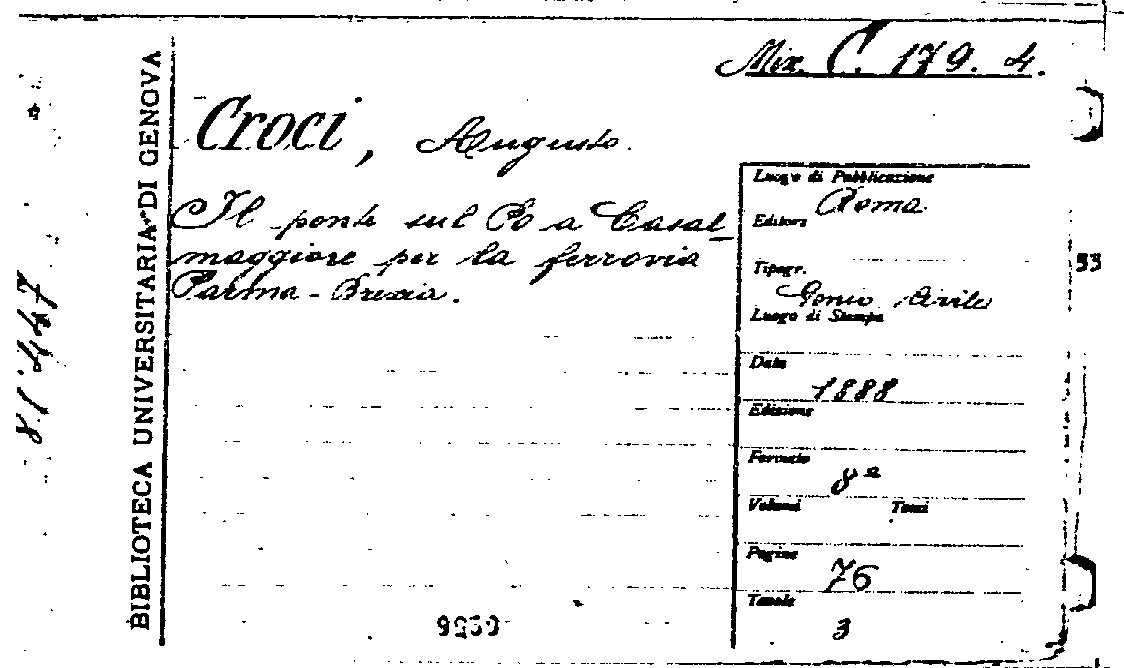 Mix. C. 179. 4.
BIBLIOTECA UNIVERSITARIA DI GENOVA
Croci, Augusto.
Il ponte sul Po a Casal-
maggiore per la ferrovia
Parma - Brescia.
Luogo di Pubblicazione
Roma
Editori
Tipogr.
Genio Civile
Luogo di Stampa
Data
1888
Edizione
Formato
8º
Volumi Tomi
Pagine
76
Tavole
3
33